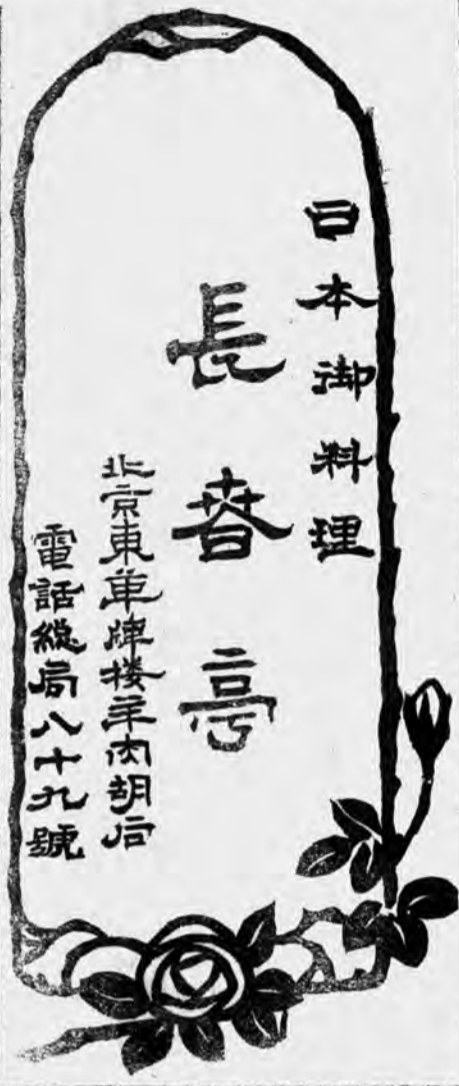 日本御料理
長春亭
北京東單牌楼羊肉胡同
電話総局八十九號